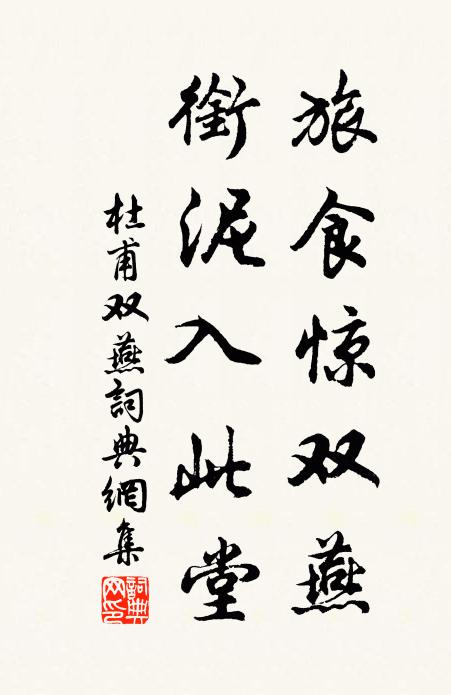 旅食惊双燕
銜泥入此堂
杜甫双燕詞典網集
詞典網印